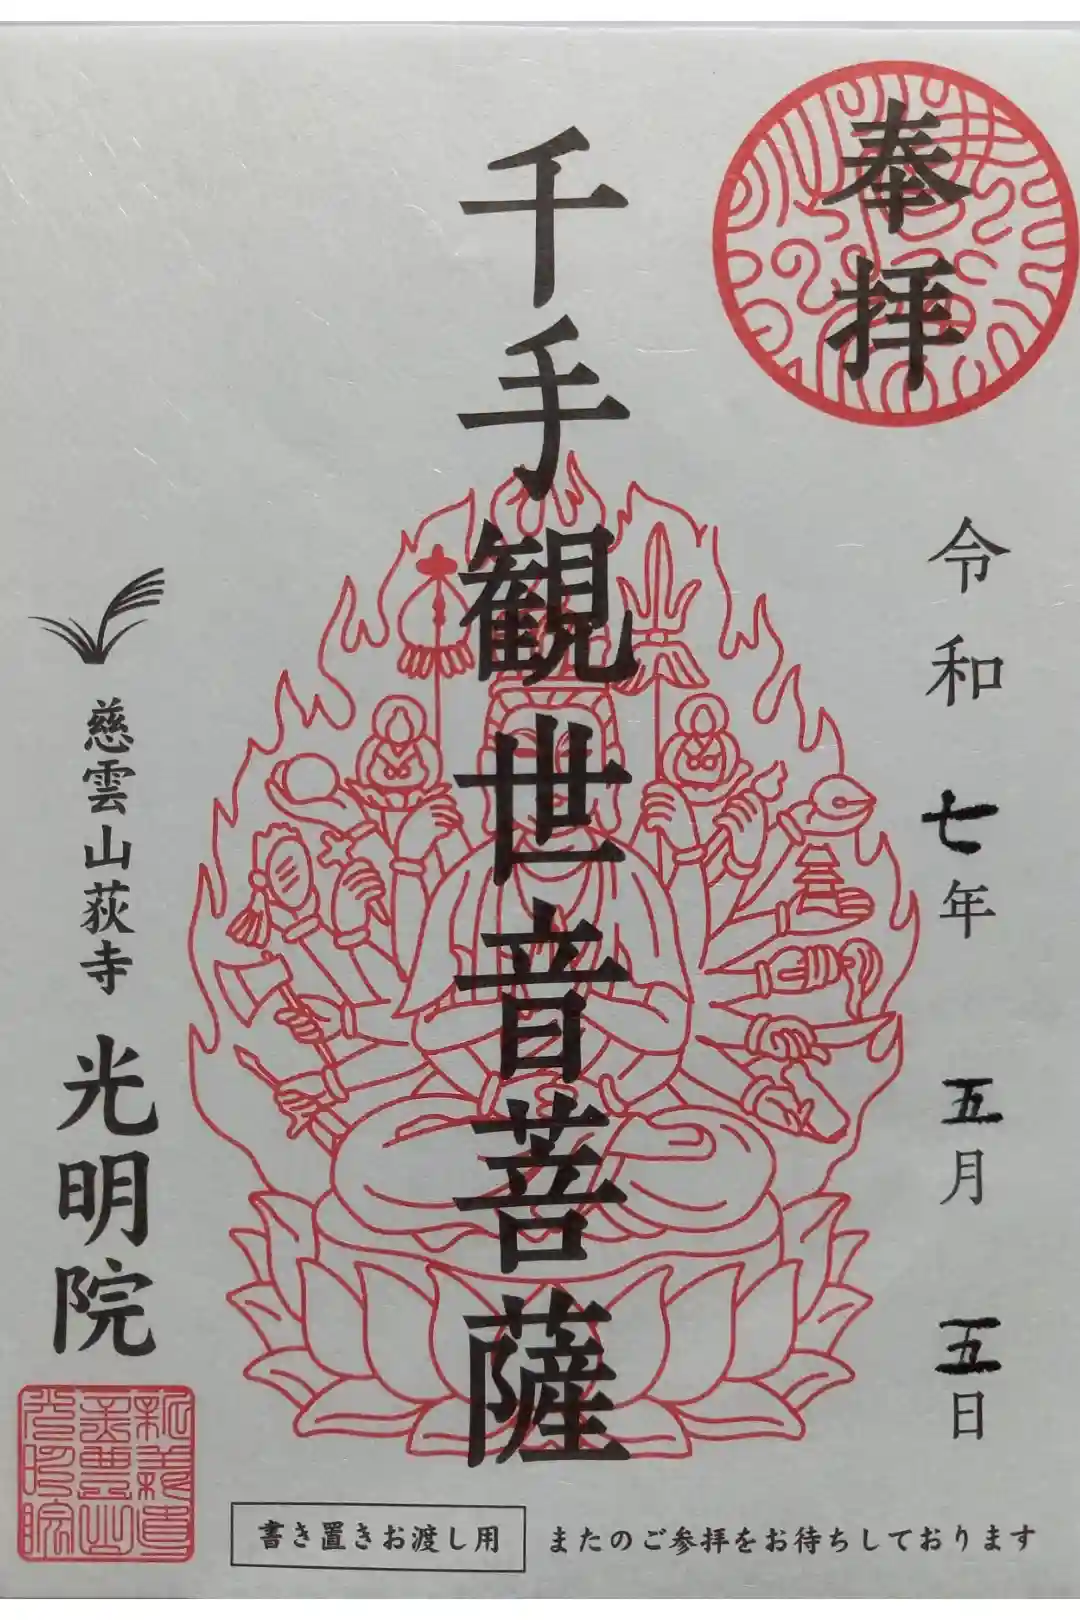 奉拝
令和七年五月五日
千手観世音菩薩
慈雲山荻寺光明院
書き置きお渡し用
またのご参拝をお待ちしております